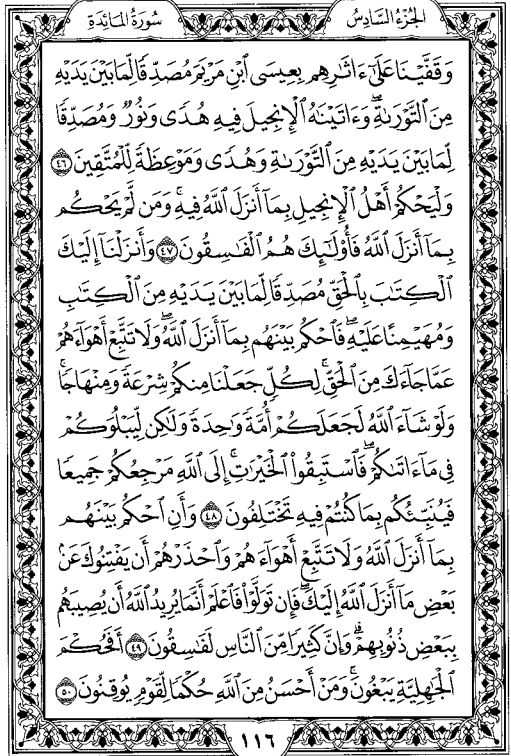 الجزء السادس
سورة المائدة
وَقَفَّيْنَا عَلَىٰٓ ءَاثَٰرِهِم بِعِيسَى ٱبْنِ مَرْيَمَ مُصَدِّقًا لِّمَا بَيْنَ يَدَيْهِ
مِنَ ٱلتَّوْرَىٰةِ ۖ وَءَاتَيْنَٰهُ ٱلْإِنجِيلَ فِيهِ هُدًى وَنُورٌ وَمُصَدِّقًا
لِّمَا بَيْنَ يَدَيْهِ مِنَ ٱلتَّوْرَىٰةِ وَهُدًى وَمَوْعِظَةً لِّلْمُتَّقِينَ ٤٦
وَلْيَحْكُمْ أَهْلُ ٱلْإِنجِيلِ بِمَآ أَنزَلَ ٱللَّهُ فِيهِ ۚ وَمَن لَّمْ يَحْكُم
بِمَآ أَنزَلَ ٱللَّهُ فَأُو۟لَٰٓئِكَ هُمُ ٱلْفَٰسِقُونَ ٤٧ وَأَنزَلْنَآ إِلَيْكَ
ٱلْكِتَٰبَ بِٱلْحَقِّ مُصَدِّقًا لِّمَا بَيْنَ يَدَيْهِ مِنَ ٱلْكِتَٰبِ
وَمُهَيْمِنًا عَلَيْهِ ۖ فَٱحْكُم بَيْنَهُم بِمَآ أَنزَلَ ٱللَّهُ ۖ وَلَا تَتَّبِعْ أَهْوَآءَهُمْ
عَمَّا جَآءَكَ مِنَ ٱلْحَقِّ ۚ لِكُلٍّ جَعَلْنَا مِنكُمْ شِرْعَةً وَمِنْهَاجًا ۚ
وَلَوْ شَآءَ ٱللَّهُ لَجَعَلَكُمْ أُمَّةً وَٰحِدَةً وَلَٰكِن لِّيَبْلُوَكُمْ
فِى مَآ ءَاتَىٰكُمْ ۖ فَٱسْتَبِقُوا۟ ٱلْخَيْرَٰتِ ۚ إِلَى ٱللَّهِ مَرْجِعُكُمْ جَمِيعًا
فَيُنَبِّئُكُم بِمَا كُنتُمْ فِيهِ تَخْتَلِفُونَ ٤٨ وَأَنِ ٱحْكُم بَيْنَهُم
بِمَآ أَنزَلَ ٱللَّهُ وَلَا تَتَّبِعْ أَهْوَآءَهُمْ وَٱحْذَرْهُمْ أَن يَفْتِنُوكَ عَنۢ
بَعْضِ مَآ أَنزَلَ ٱللَّهُ إِلَيْكَ ۖ فَإِن تَوَلَّوْا۟ فَٱعْلَمْ أَنَّمَا يُرِيدُ ٱللَّهُ أَن يُصِيبَهُم
بِبَعْضِ ذُنُوبِهِمْ ۗ وَإِنَّ كَثِيرًا مِّنَ ٱلنَّاسِ لَفَٰسِقُونَ ٤٩ أَفَحُكْمَ
ٱلْجَٰهِلِيَّةِ يَبْغُونَ ۚ وَمَنْ أَحْسَنُ مِنَ ٱللَّهِ حُكْمًا لِّقَوْمٍ يُوقِنُونَ ٥٠
١١٦